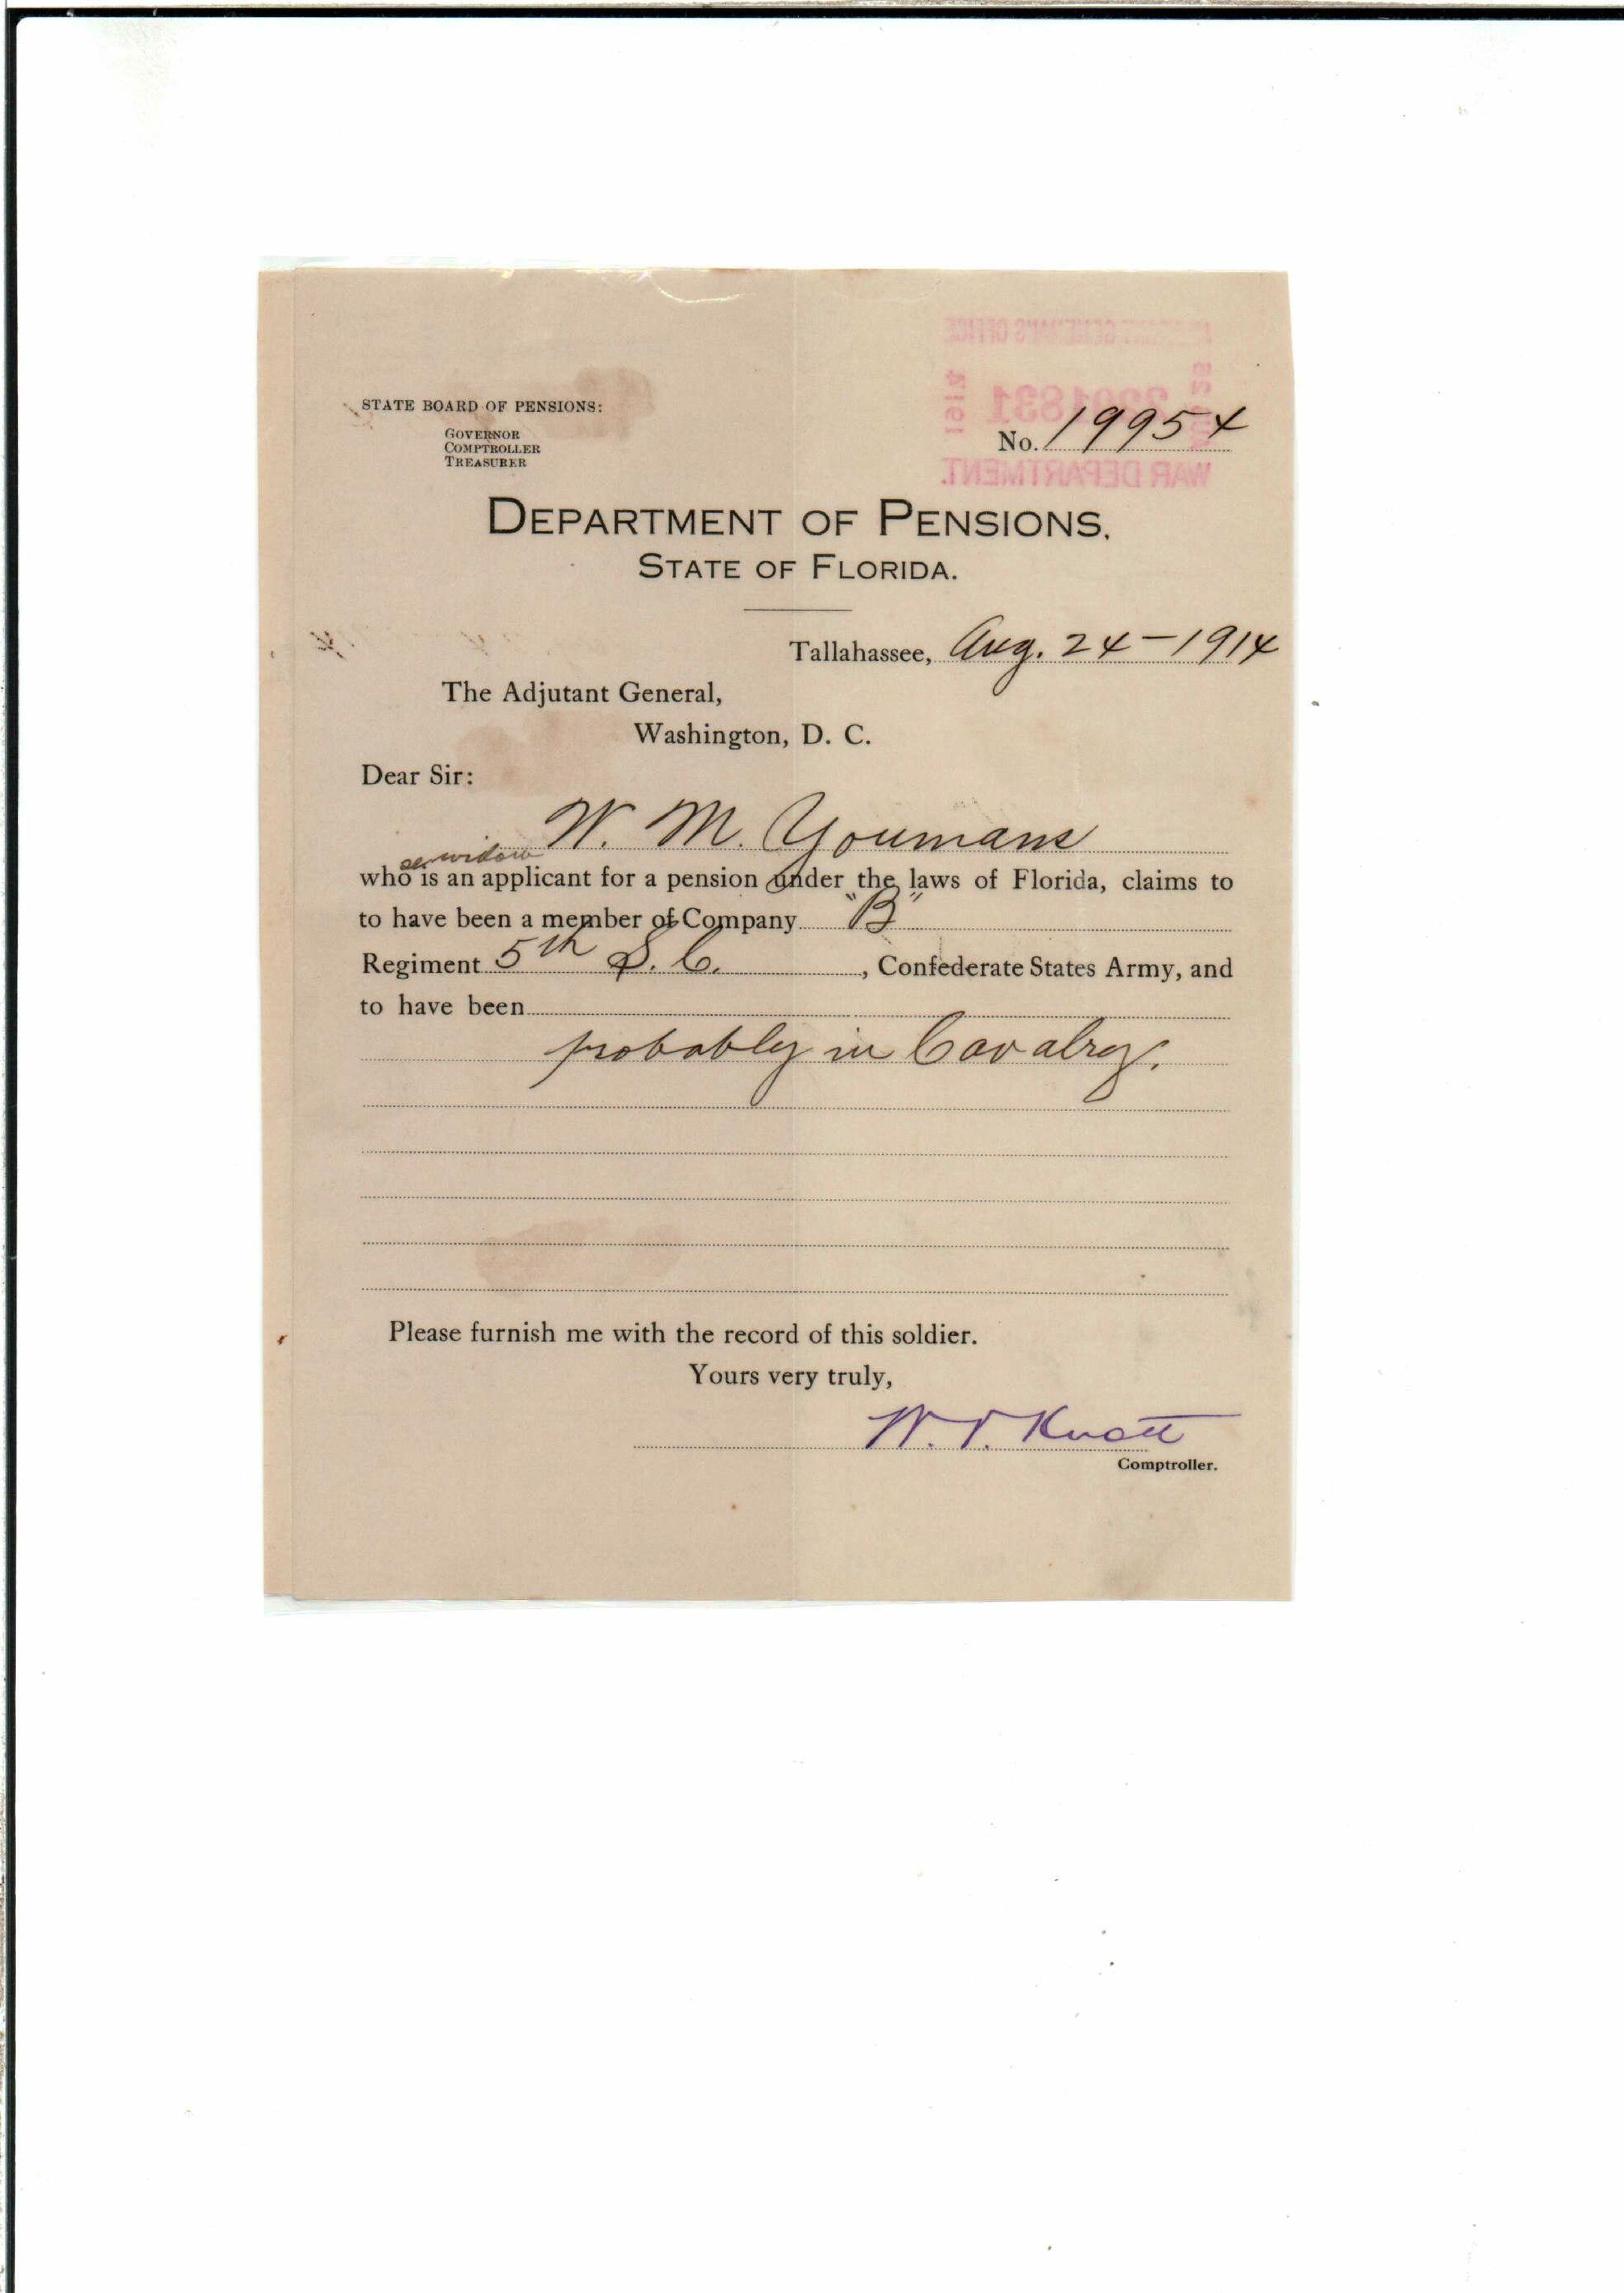 STATE BOARD OF PENSIONS:
GOVERNOR
COMPTROLLER
TREASURER
ADJUTANT GENERAL'S OFFICE
1914
WAR DEPARTMENT.
No. 19954
DEPARTMENT OF PENSIONS.
STATE OF FLORIDA.
Tallahassee, Aug. 24-1914
The Adjutant General,
Washington, D. C.
Dear Sir:
W. M. Youmans
widow
who is an applicant for a pension under the laws of Florida, claims to
to have been a member of Company "B"
Regiment 5th S. C. , Confederate States Army, and
to have been
probably in Cavalry.
Please furnish me with the record of this soldier.
Yours very truly,
W. V. Knott
Comptroller.